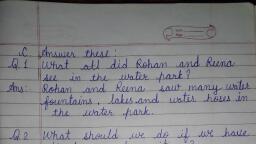 C. Answer these:
Q.1 What all did Rohan and Reena
see in the water park?
Ans: Rohan and Reena saw many water
fountains, lakes and water hoses in
the water park.
Q.2 What should we do if we have